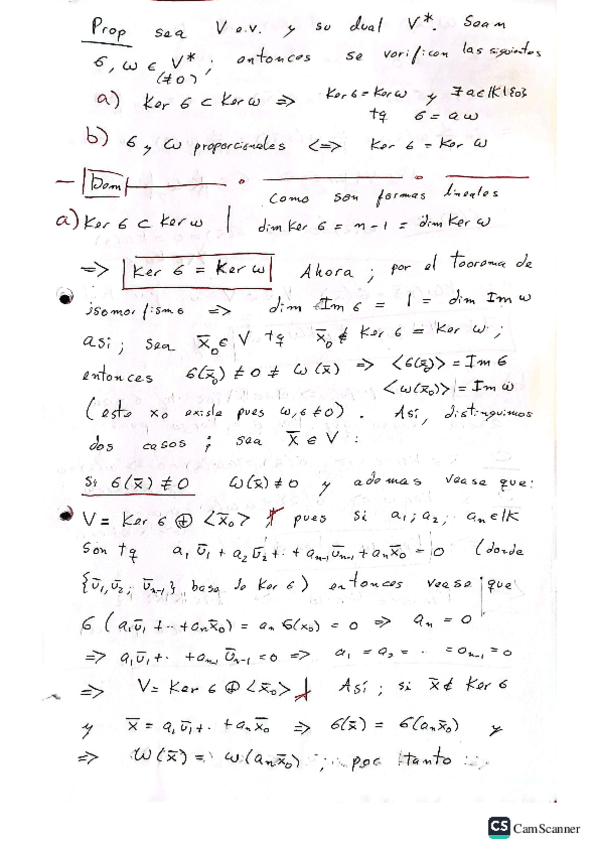 Prop sea V e.v. y su dual V*. Sean
σ, ω ∈ V* (≠0) ; entonces se verifican las siguientes
a) Ker σ ⊂ Ker ω => Ker σ = Ker ω y ∃ a ∈ K\{0}
tq σ = a ω
b) σ y ω proporcionales <=> Ker σ = Ker ω
Dem
como son formas lineales
a) Ker σ ⊂ Ker ω | dim Ker σ = n-1 = dim Ker ω
=> Ker σ = Ker ω Ahora ; por el teorema de
isomorfismo => dim Im σ = 1 = dim Im ω
así ; sea x̄₀ ∈ V tq x̄₀ ∉ Ker σ = Ker ω ;
entonces σ(x̄₀) ≠ 0 ≠ ω(x̄) => <σ(x̄₀)> = Im σ
<ω(x̄₀)> = Im ω
(este x₀ existe pues ω, σ ≠ 0). Así, distinguimos
dos casos ; sea x̄ ∈ V :
Si σ(x̄) ≠ 0 ω(x̄) ≠ 0 y ademas vease que:
V = Ker σ ⊕ <x̄₀> pues si a₁; a₂; aₙ ∈ K
son tq a₁ū₁ + a₂ū₂ + ·· + aₙ₋₁ūₙ₋₁ + aₙx̄₀ = 0 (donde
{ū₁, ū₂; ūₙ₋₁} base de Ker σ) entonces vease que
σ(a₁ū₁ + ·· + aₙx̄₀) = aₙ σ(x₀) = 0 => aₙ = 0
=> a₁ū₁ + ·· + aₙ₋₁ūₙ₋₁ = 0 => a₁ = a₂ = ·· = aₙ₋₁ = 0
=> V = Ker σ ⊕ <x̄₀> Así ; si x̄ ∉ Ker σ
y x̄ = a₁ū₁ + ·· + aₙx̄₀ => σ(x̄) = σ(aₙx̄₀) y
=> ω(x̄) = ω(aₙx̄₀) ; por tanto :
CS CamScanner